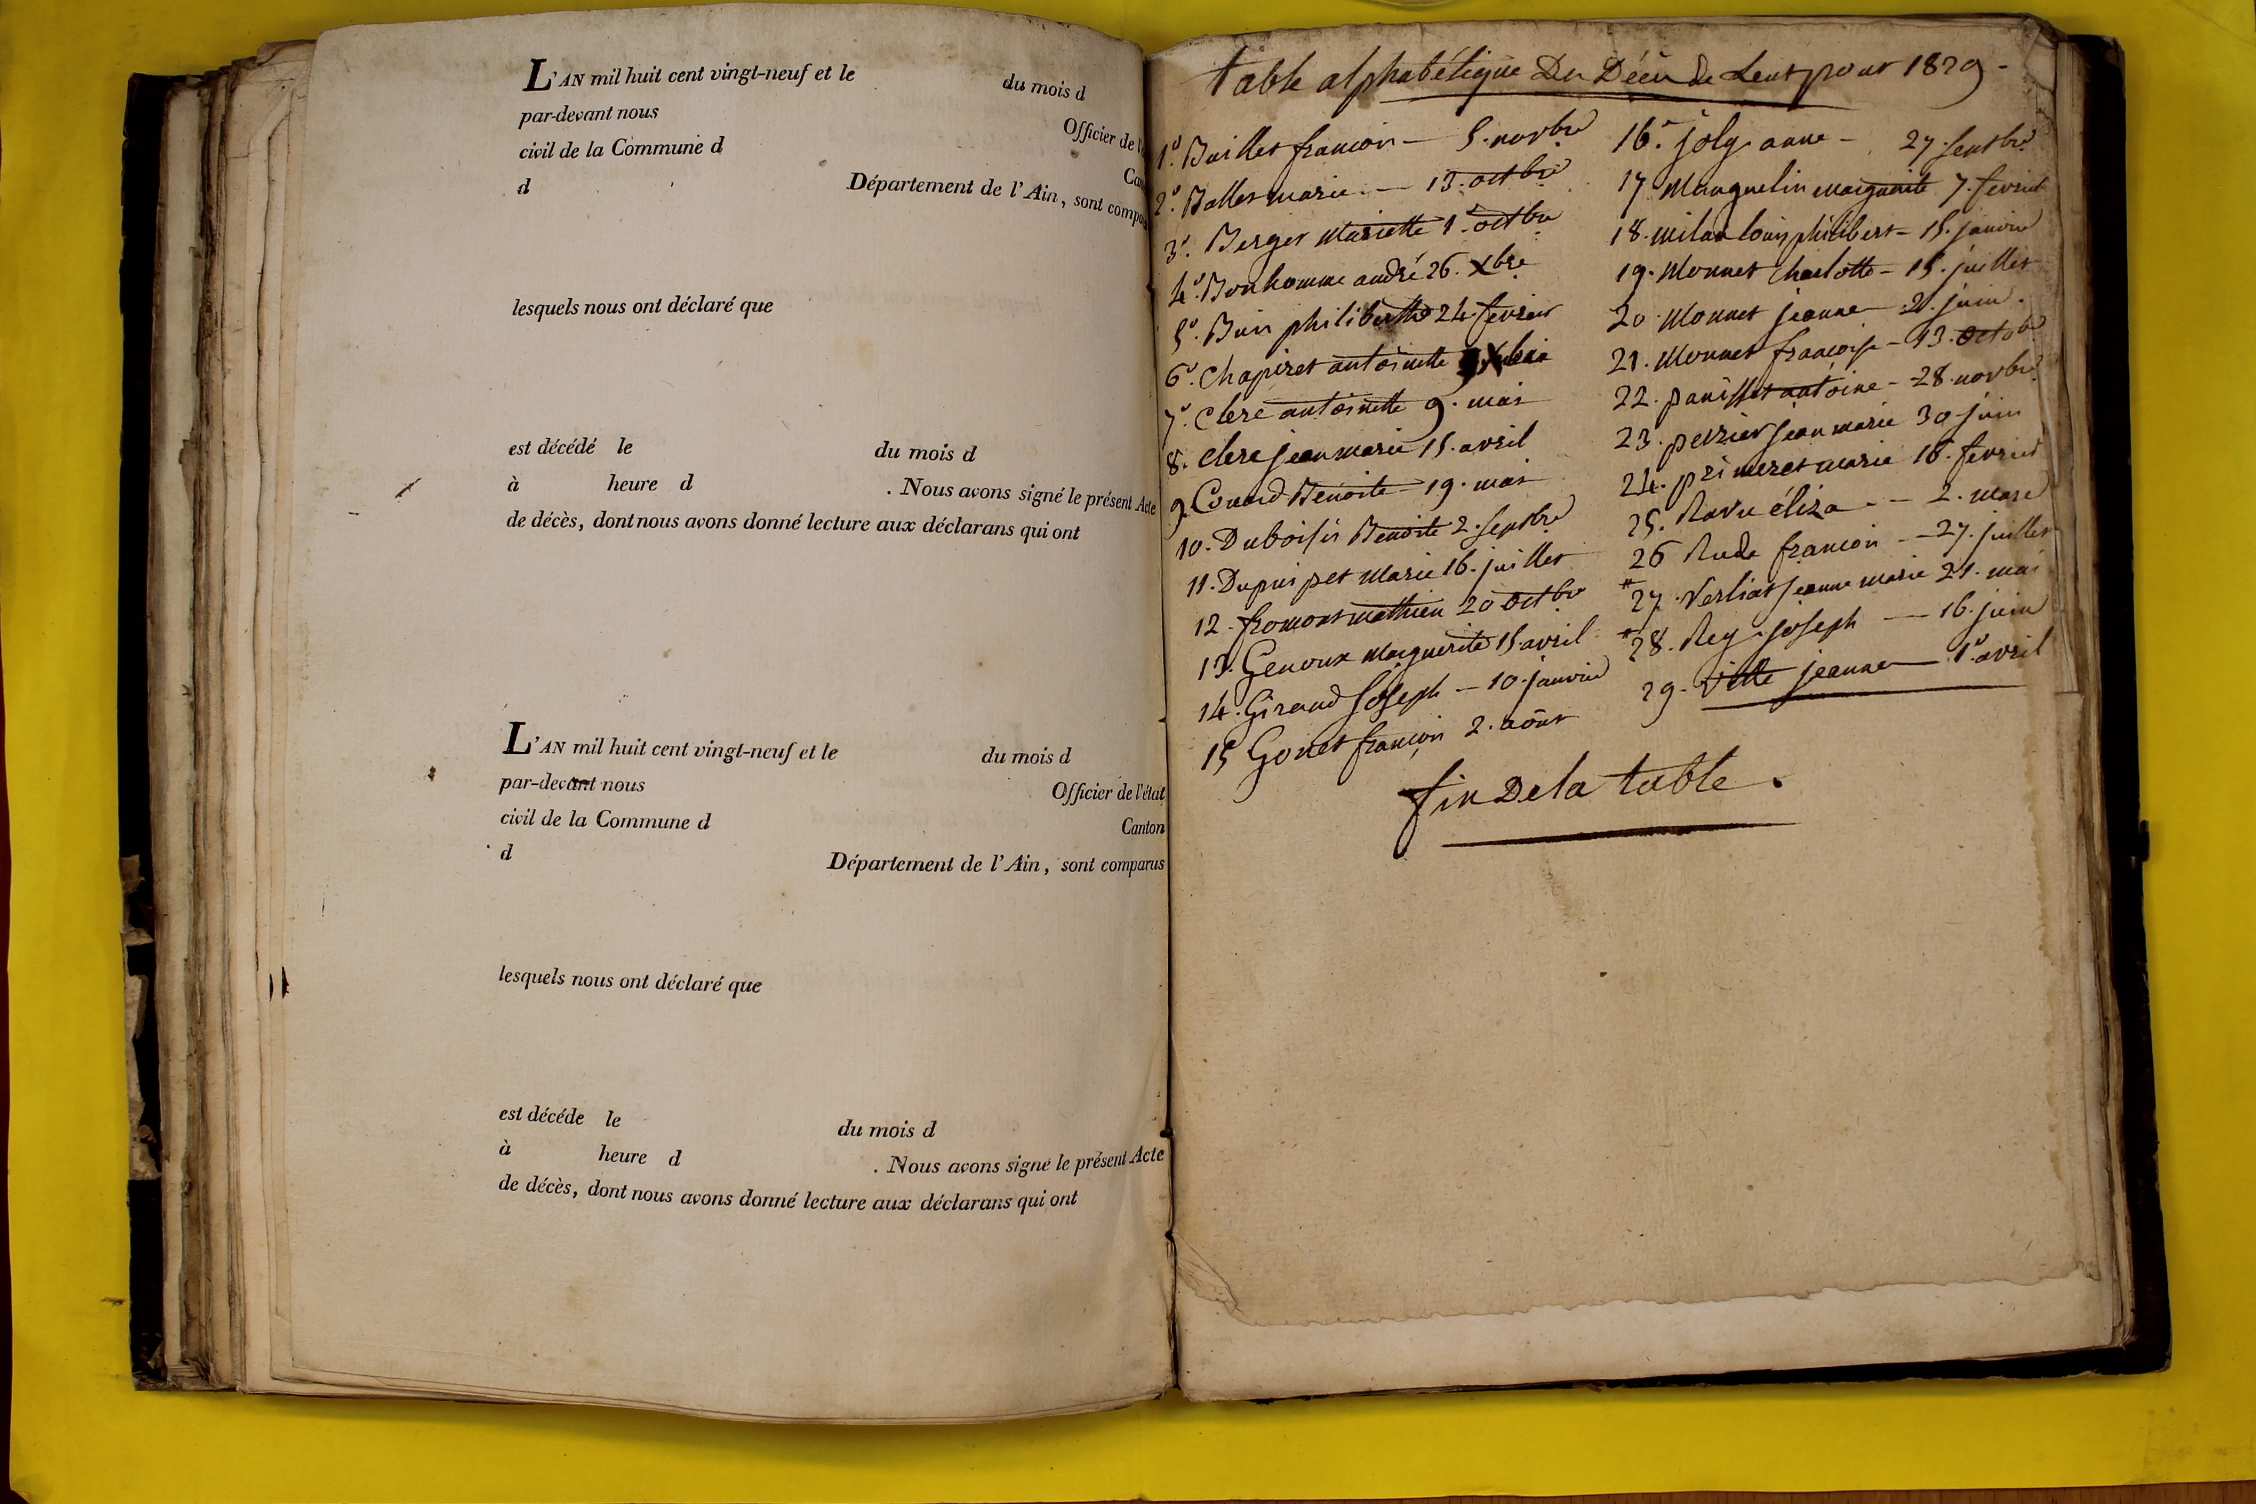 L'AN mil huit cent vingt-neuf et le du mois d
par-devant nous Officier de l'
civil de la Commune d Can
d Département de l'Ain, sont compa
lesquels nous ont déclaré que
est décédé le du mois d
à heure d . Nous avons signé le présent Acte
de décès, dont nous avons donné lecture aux déclarans qui ont
L'AN mil huit cent vingt-neuf et le du mois d
par-devant nous Officier de l'état
civil de la Commune d Canton
d Département de l'Ain, sont comparus
lesquels nous ont déclaré que
est décéde le du mois d
à heure d . Nous avons signé le présent Acte
de décès, dont nous avons donné lecture aux déclarans qui ont
table alphabétique Du Décès de Lent pour 1829 -
1°. Baillet françois - 5. novbre
2°. Ballet marie - 13. octbre
3°. Berger Mariette 1er octbre
4°. Bonhomme andré 26. Xbre
5°. philiberthe 24 fevrier
6°. Chapiret antoinette
7°. Clere antoinette 9. mai
8. Clere jean marie 15. avril
9. Benoite - 19. mai
10. Duboisis Benoite 2. septbre
11. Dupuis pet Marie 16. juillet
12. fromont mathieu 20 octbre
13. Genoux Marguerite 15 avril
14. Giraud Joseph - 10. janvier
15 Gonet françois 2. août
16. joly anne - 27. septbre
17. Manguelin marguerite 7. fevrier
18. milan louis philibert - 15. janvier
19. Monnet Charlotte - 15. juillet
20. Monnet jeanne - 2. juin.
21. Monnet françoise - 13. octob
22. panisset antoine - 28. novbre
23. perrier jean marie 30 juin
24. primeret marie 18. fevrier
25. Ravu éliza - 2. mars
26 Rude françois - 27. juillet
27. Verliat jeanne marie 21. mai
28. Rey joseph - 16. juin
29. Vitte jeanne 1er avril
fin De la table.